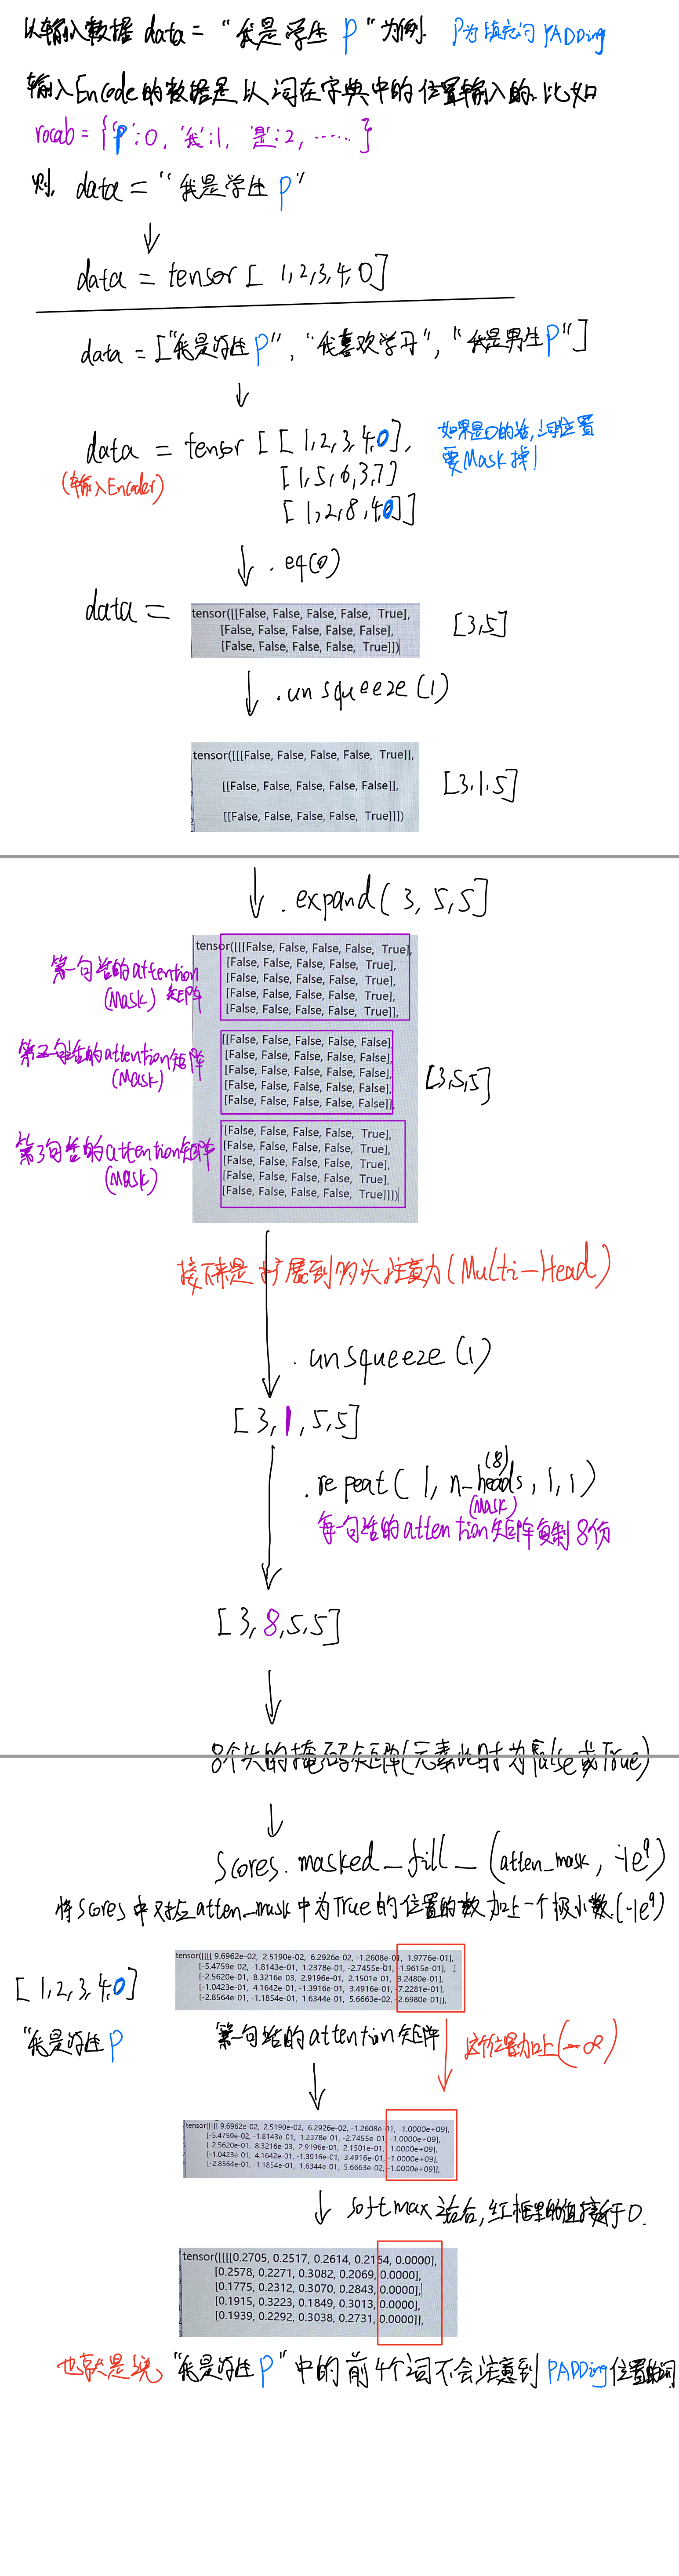 以输入数据 data = "我是学生 P" 为例. P为填充的 PADDing
输入Encode的数据是以词在字典中的位置输入的.比如
vocab = {'P':0, '我':1, '是':2, ……}
则, data = "我是学生 P"
data = tensor [ 1,2,3,4,0]
data = ["我是学生 P", "我喜欢学习", "我是男生 P"]
data = tensor [ [ 1,2,3,4,0],
如果是0的话,词位置
要Mask掉!
(输入Encoder)
[1,5,6,3,7]
[ 1,2,8,4,0]]
.eq(0)
data =
tensor([[False, False, False, False, True],
[False, False, False, False, False],
[False, False, False, False, True]])
[3,5]
.unsqueeze(1)
tensor([[[False, False, False, False, True]],
[[False, False, False, False, False]],
[[False, False, False, False, True]]])
[3,1,5]
.expand( 3, 5,5]
第一句话的attention
(Mask) 矩阵
tensor([[[False, False, False, False, True],
[False, False, False, False, True],
[False, False, False, False, True],
[False, False, False, False, True],
[False, False, False, False, True]],
第二句话的attention矩阵
(Mask)
[[False, False, False, False, False],
[False, False, False, False, False],
[False, False, False, False, False],
[False, False, False, False, False],
[False, False, False, False, False]],
[3,5,5]
第3句话的attention矩阵
(Mask)
[[False, False, False, False, True],
[False, False, False, False, True],
[False, False, False, False, True],
[False, False, False, False, True],
[False, False, False, False, True]]])
接下来是扩展到多头注意力(Multi-Head)
.unsqueeze(1)
[3,1,5,5]
(8)
.repeat( 1, n_heads, 1, 1)
(Mask)
每一句话的attention矩阵复制8份
[3,8,5,5]
8个头的掩码矩阵(元素此时为False或True)
Scores.masked_fill_(atten_mask, -1e9)
将Scores中对应atten_mask中为True的位置的数加上一个极小数.(-1e9)
tensor([[[[ 9.6962e-02, 2.5190e-02, 6.2926e-02, -1.2608e-01, 1.9776e-01],
[-5.4759e-02, -1.8143e-01, 1.2378e-01, -2.7455e-01, -1.9615e-01],
[-2.5620e-01, 8.3216e-03, 2.9196e-01, 2.1501e-01, -3.2480e-01],
[-1.0423e-01, 4.1642e-01, -1.3916e-01, 3.4916e-01, -7.2281e-01],
[-2.8564e-01, -1.1854e-01, 1.6344e-01, 5.6663e-02, -2.6980e-01]],
[ 1,2,3,4,0]
"我是学生 P
第一句话的attention矩阵
这个位置加上(-∞)
tensor([[[[ 9.6962e-02, 2.5190e-02, 6.2926e-02, -1.2608e-01, -1.0000e+09],
[-5.4759e-02, -1.8143e-01, 1.2378e-01, -2.7455e-01, -1.0000e+09],
[-2.5620e-01, 8.3216e-03, 2.9196e-01, 2.1501e-01, -1.0000e+09],
[-1.0423e-01, 4.1642e-01, -1.3916e-01, 3.4916e-01, -1.0000e+09],
[-2.8564e-01, -1.1854e-01, 1.6344e-01, 5.6663e-02, -1.0000e+09]],
softmax之后,红框里的值接近于0.
tensor([[[[0.2705, 0.2517, 0.2614, 0.2164, 0.0000],
[0.2578, 0.2271, 0.3082, 0.2069, 0.0000],
[0.1775, 0.2312, 0.3070, 0.2843, 0.0000],
[0.1915, 0.3223, 0.1849, 0.3013, 0.0000],
[0.1939, 0.2292, 0.3038, 0.2731, 0.0000]],
也就是说, "我是学生 P" 中的前4个词不会注意到 PADDing 位置的词